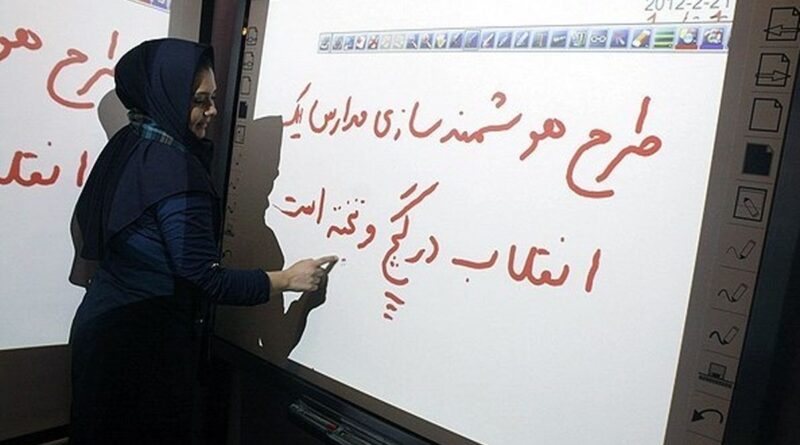 2012-2-21
طرح هوشمند سازی مدارس یک
انقلاب در گچ و تخته است
طرح هو
انقلا